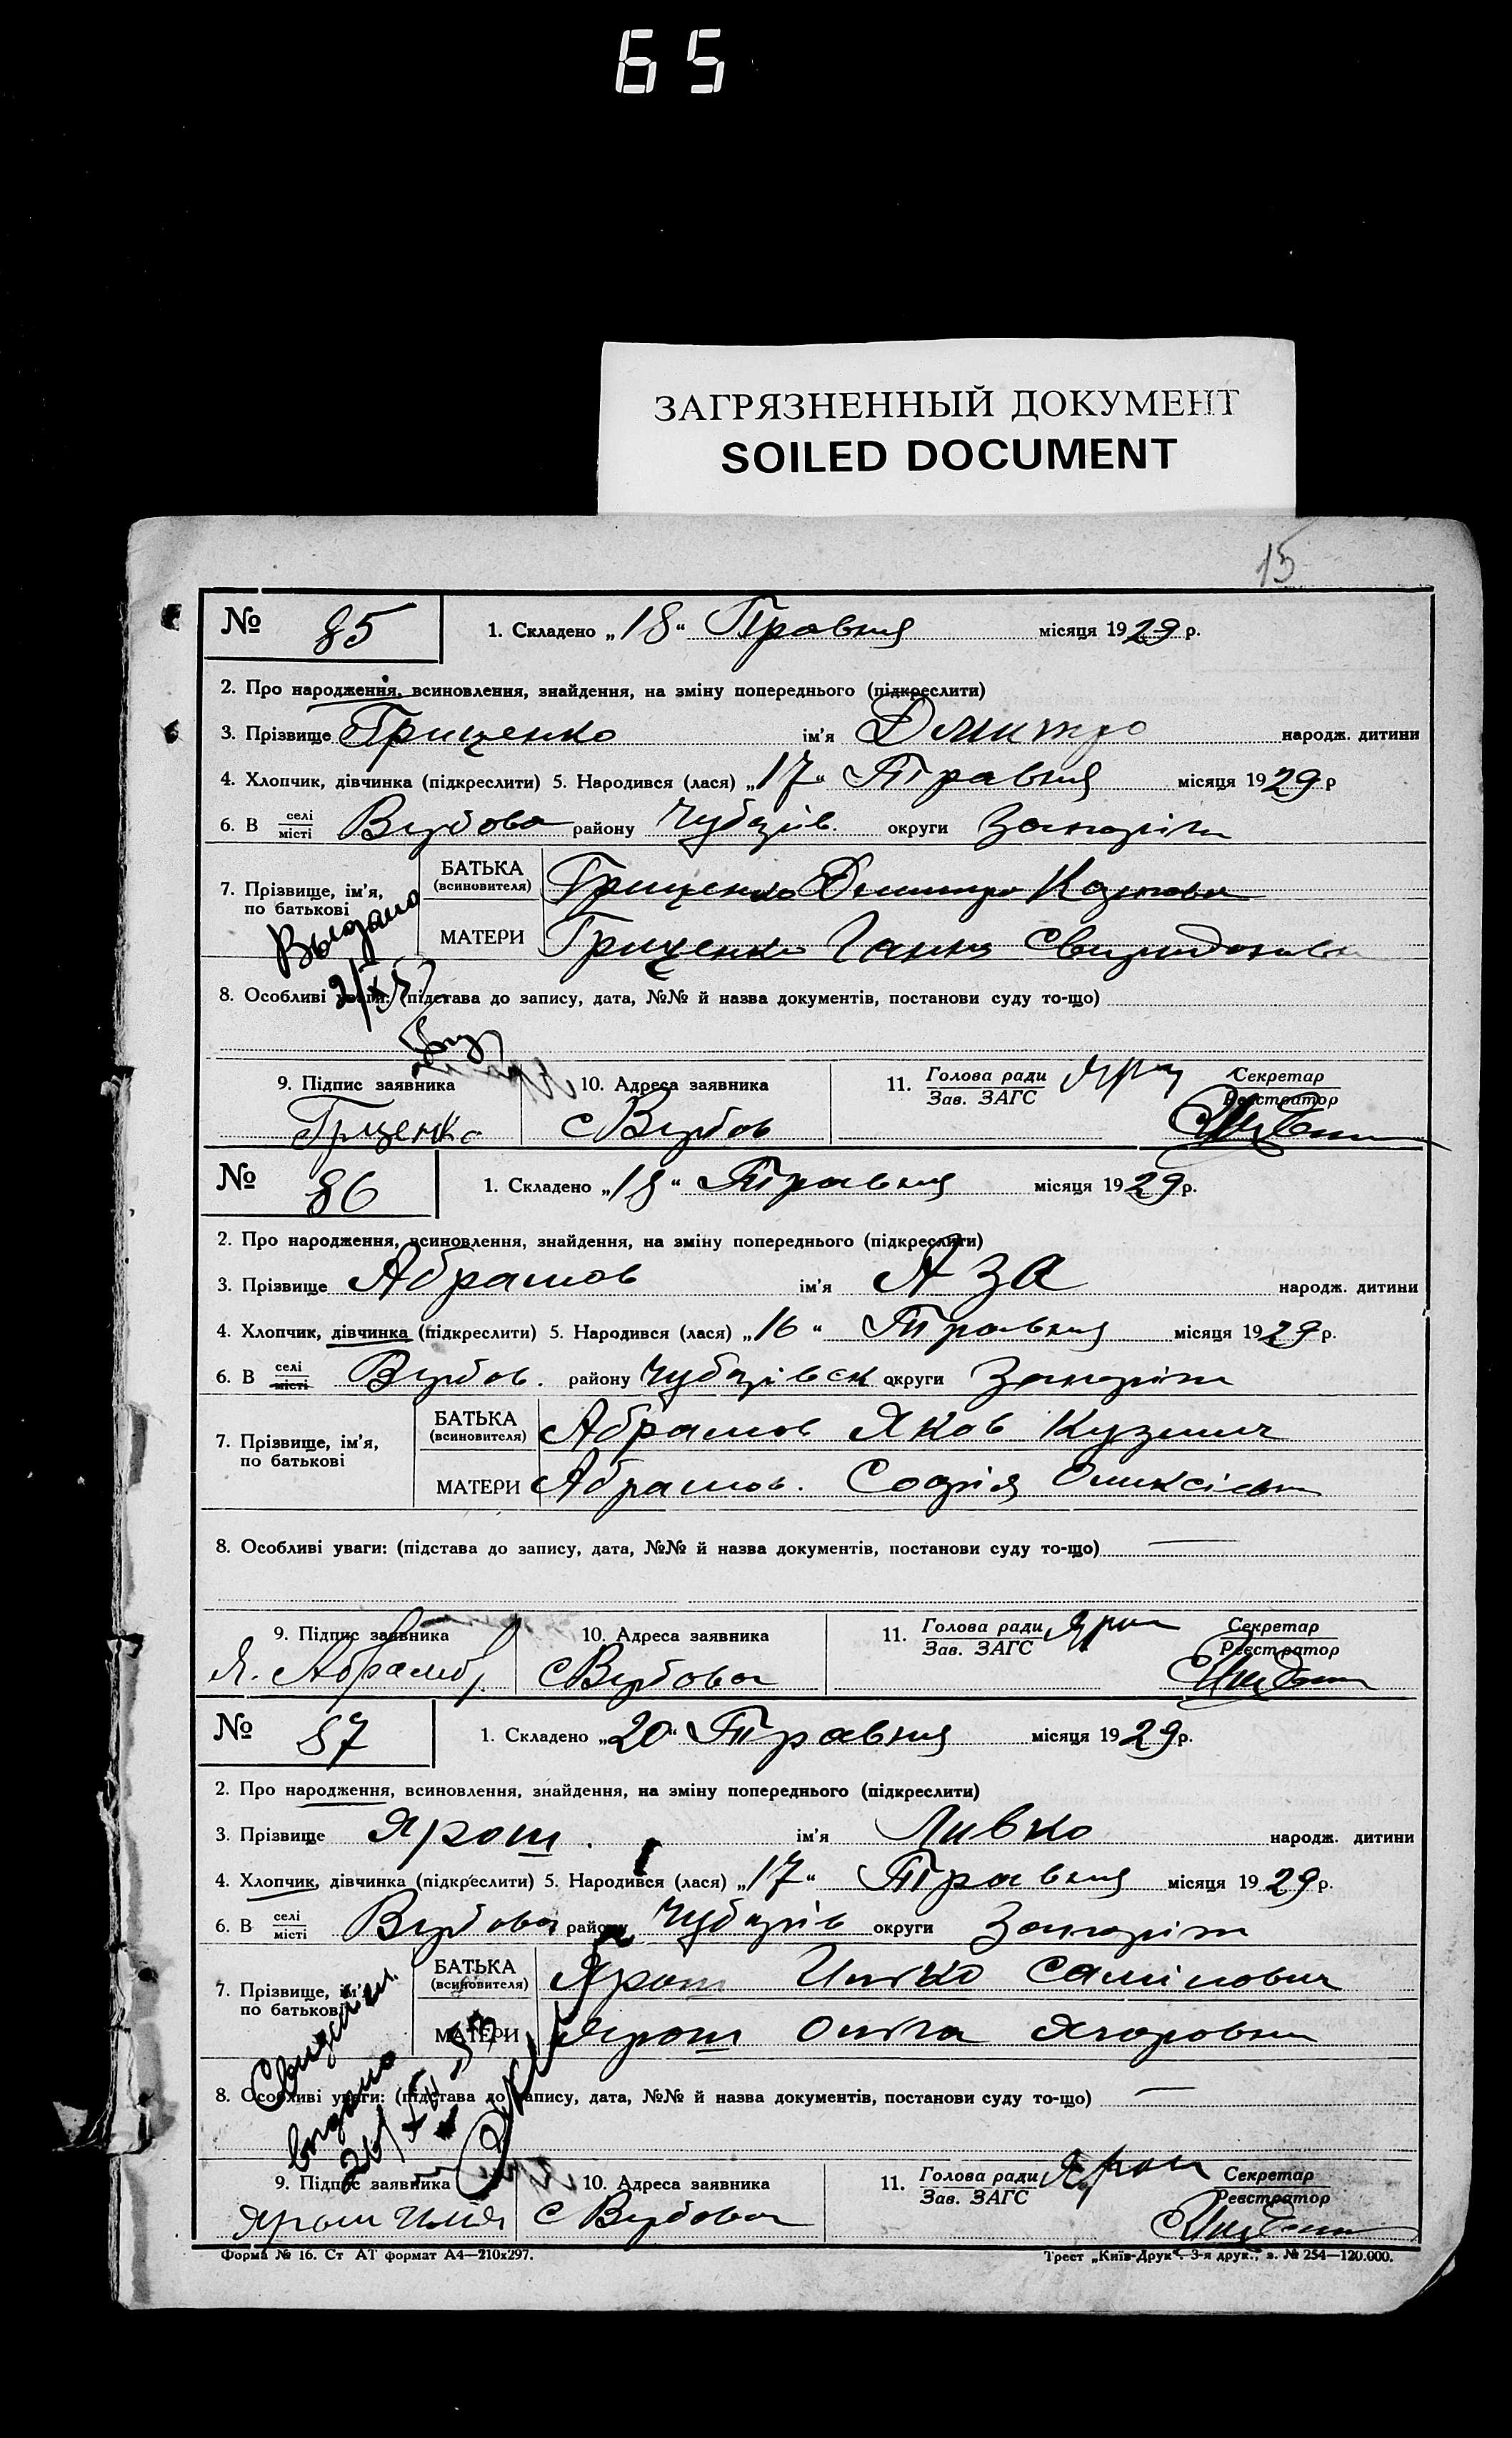 65
ЗАГРЯЗНЕННЫЙ ДОКУМЕНТ
SOILED DOCUMENT
15
№ 85 1. Складено „18“ Травня місяця 1929 р.
2. Про народження, всиновлення, знайдення, на зміну попереднього (підкреслити)
3. Прізвище Грищенко ім'я Дмитро народж. дитини
4. Хлопчик, дівчинка (підкреслити) 5. Народився (лася) „17“ Травня місяця 1929 р
6. В селі місті Вербова району Чубарів. округи Запоріж
7. Прізвище, ім'я, по батькові БАТЬКА (всиновителя) Грищенко Дмитро
Выдано
МАТЕРИ Грищенко Ганна
8. Особливі уваги: (підстава до запису, дата, №№ й назва документів, постанови суду то-що)
9. Підпис заявника 10. Адреса заявника 11. Голова ради Зав. ЗАГС Секретар Реєстратор
Грщенко с Вербов
№ 86 1. Складено „18“ Травня місяця 1929 р.
2. Про народження, всиновлення, знайдення, на зміну попереднього (підкреслити)
3. Прізвище Абрамов ім'я Аза народж. дитини
4. Хлопчик, дівчинка (підкреслити) 5. Народився (лася) „16“ Травня місяця 1929 р.
6. В селі місті Вербов. району Чубарівск округи Запоріж
7. Прізвище, ім'я, по батькові БАТЬКА (всиновителя) Абрамов Яков Кузмич
МАТЕРИ Абрамов. Софія
8. Особливі уваги: (підстава до запису, дата, №№ й назва документів, постанови суду то-що)
9. Підпис заявника 10. Адреса заявника 11. Голова ради Зав. ЗАГС Секретар Реєстратор
Я. Абрамов с Вербова
№ 87 1. Складено „20“ Травня місяця 1929 р.
2. Про народження, всиновлення, знайдення, на зміну попереднього (підкреслити)
3. Прізвище Ярош. ім'я Ливко народж. дитини
4. Хлопчик, дівчинка (підкреслити) 5. Народився (лася) „17“ Травня місяця 1929 р.
6. В селі місті Вербова району Чубарів округи Запоріж
7. Прізвище, ім'я, по батькові БАТЬКА (всиновителя) Ярош
МАТЕРИ Ярош Ольга
выдано
8. Особливі уваги: (підстава до запису, дата, №№ й назва документів, постанови суду то-що)
9. Підпис заявника 10. Адреса заявника 11. Голова ради Зав. ЗАГС Секретар Реєстратор
Ярош с Вербова
Форма № 16. Ст АТ формат А4—210х297. Трест „Київ-Друк“. 3-я друк., з. № 254—120.000.